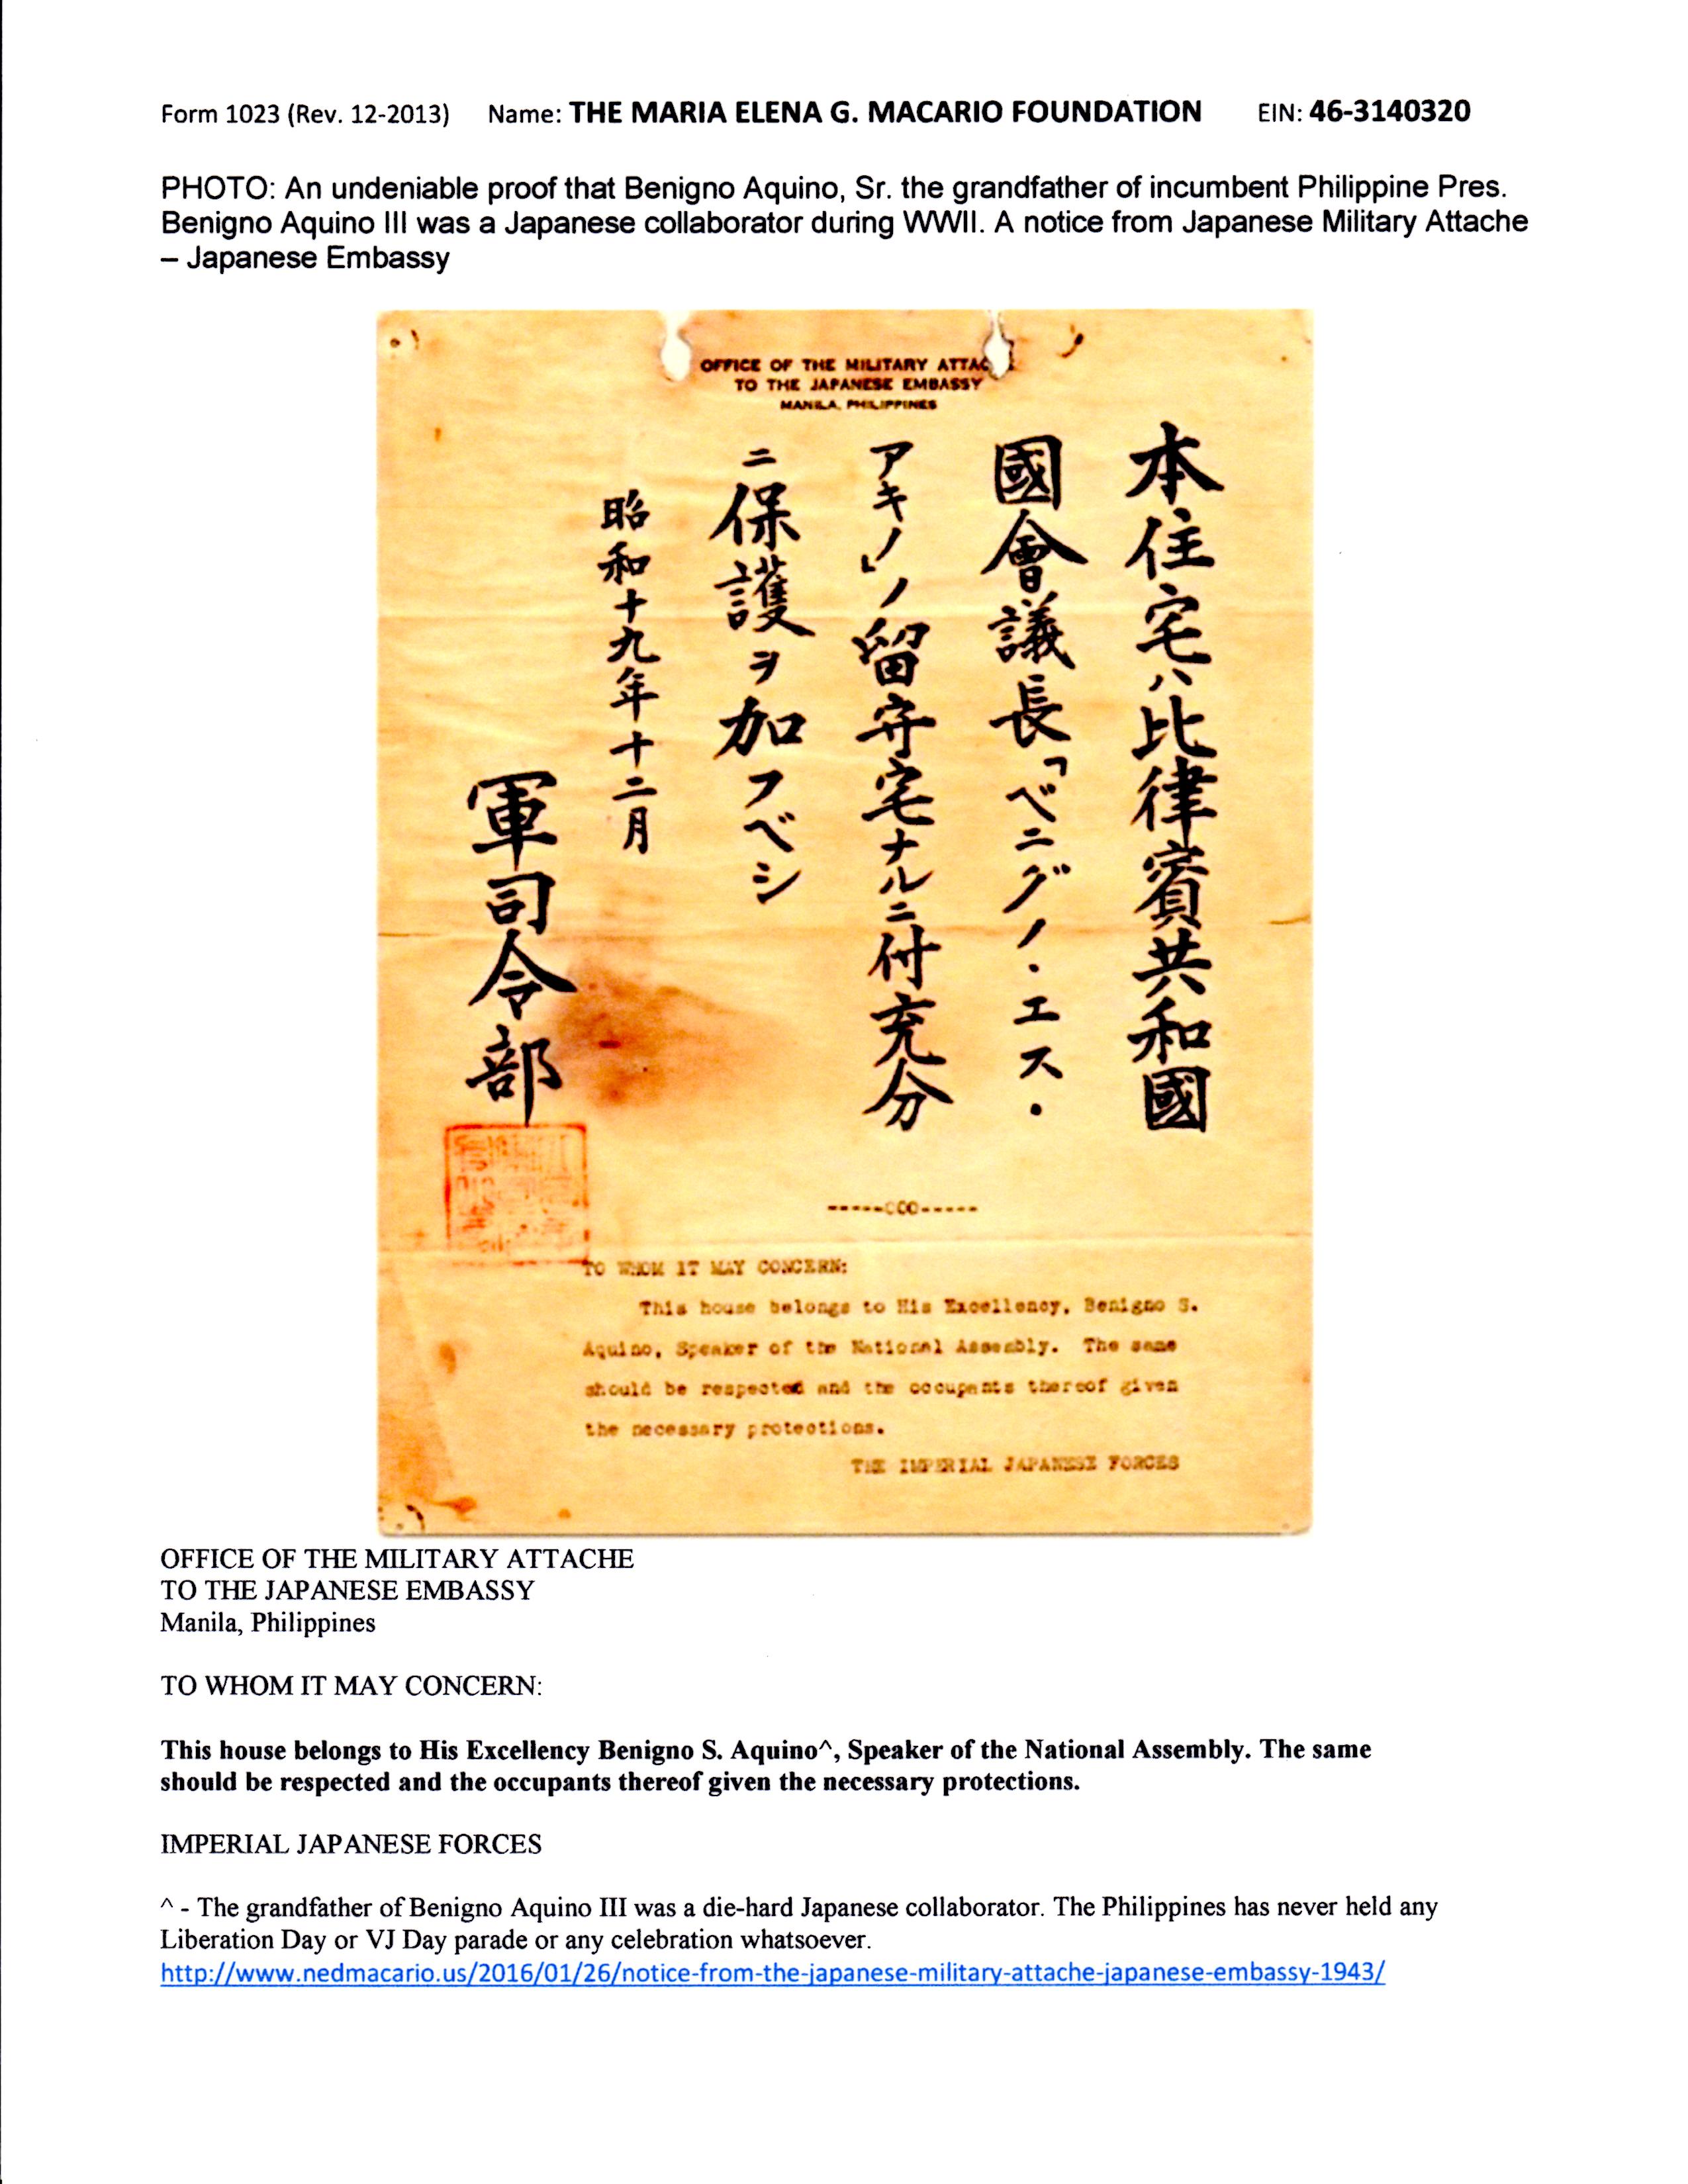 Form 1023 (Rev. 12-2013) Name: THE MARIA ELENA G. MACARIO FOUNDATION EIN: 46-3140320
PHOTO: An undeniable proof that Benigno Aquino, Sr. the grandfather of incumbent Philippine Pres.
Benigno Aquino III was a Japanese collaborator during WWII. A notice from Japanese Military Attache
– Japanese Embassy
OFFICE OF THE MILITARY ATTAC
TO THE JAPANESE EMBASSY
MANILA, PHILIPPINES
本住宅ハ比律賓共和國
國會議長「ベニグノ・エス・
アキノ」ノ留守宅ナルニ付充分
ニ保護ヲ加フベシ
昭和十九年十二月
軍司令部
-----OOO-----
TO WHOM IT MAY CONCERN:
This house belongs to His Excellency, Benigno S.
Aquino, Speaker of the National Assembly. The same
should be respected and the occupants thereof given
the necessary protections.
THE IMPERIAL JAPANESE FORCES
OFFICE OF THE MILITARY ATTACHE
TO THE JAPANESE EMBASSY
Manila, Philippines
TO WHOM IT MAY CONCERN:
This house belongs to His Excellency Benigno S. Aquino^, Speaker of the National Assembly. The same
should be respected and the occupants thereof given the necessary protections.
IMPERIAL JAPANESE FORCES
^ - The grandfather of Benigno Aquino III was a die-hard Japanese collaborator. The Philippines has never held any
Liberation Day or VJ Day parade or any celebration whatsoever.
http://www.nedmacario.us/2016/01/26/notice-from-the-japanese-military-attache-japanese-embassy-1943/